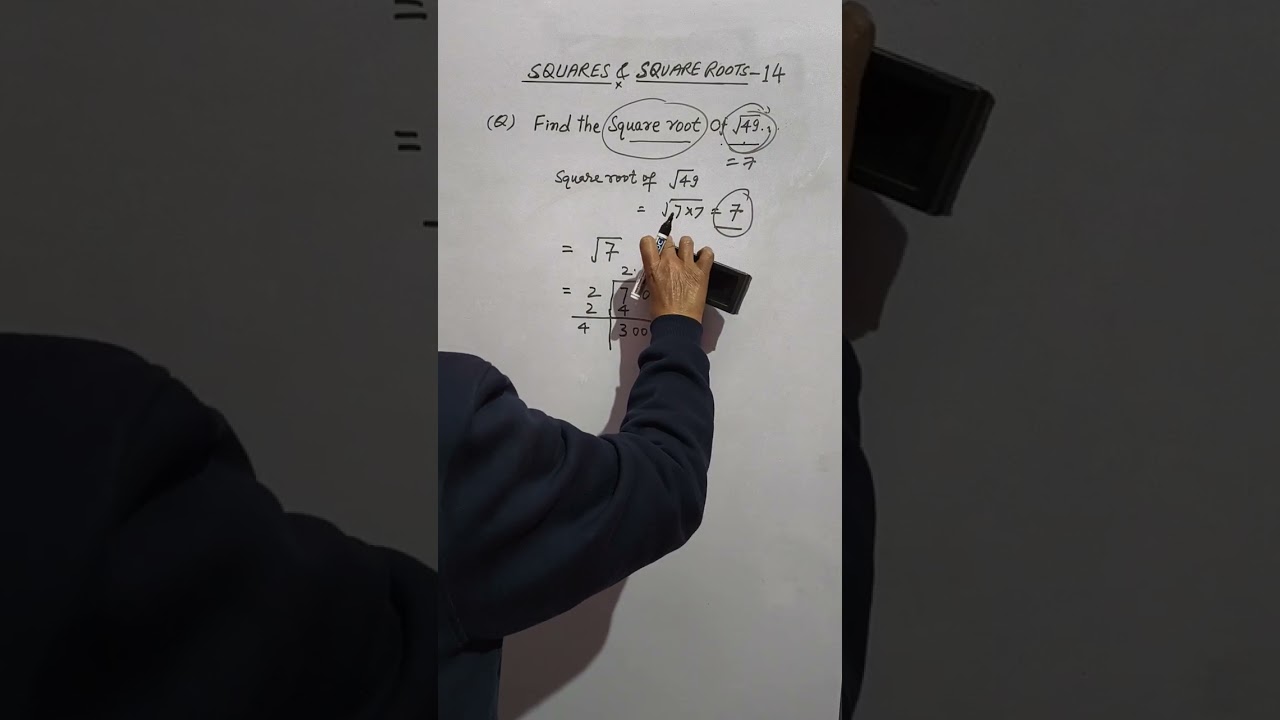 SQUARES & SQUARE ROOTS-14
(Q) Find the Square root Of √49.
= 7
Square root of √49
= √7×7 = 7
= √7
2.
= 2 7
2 4
4 300